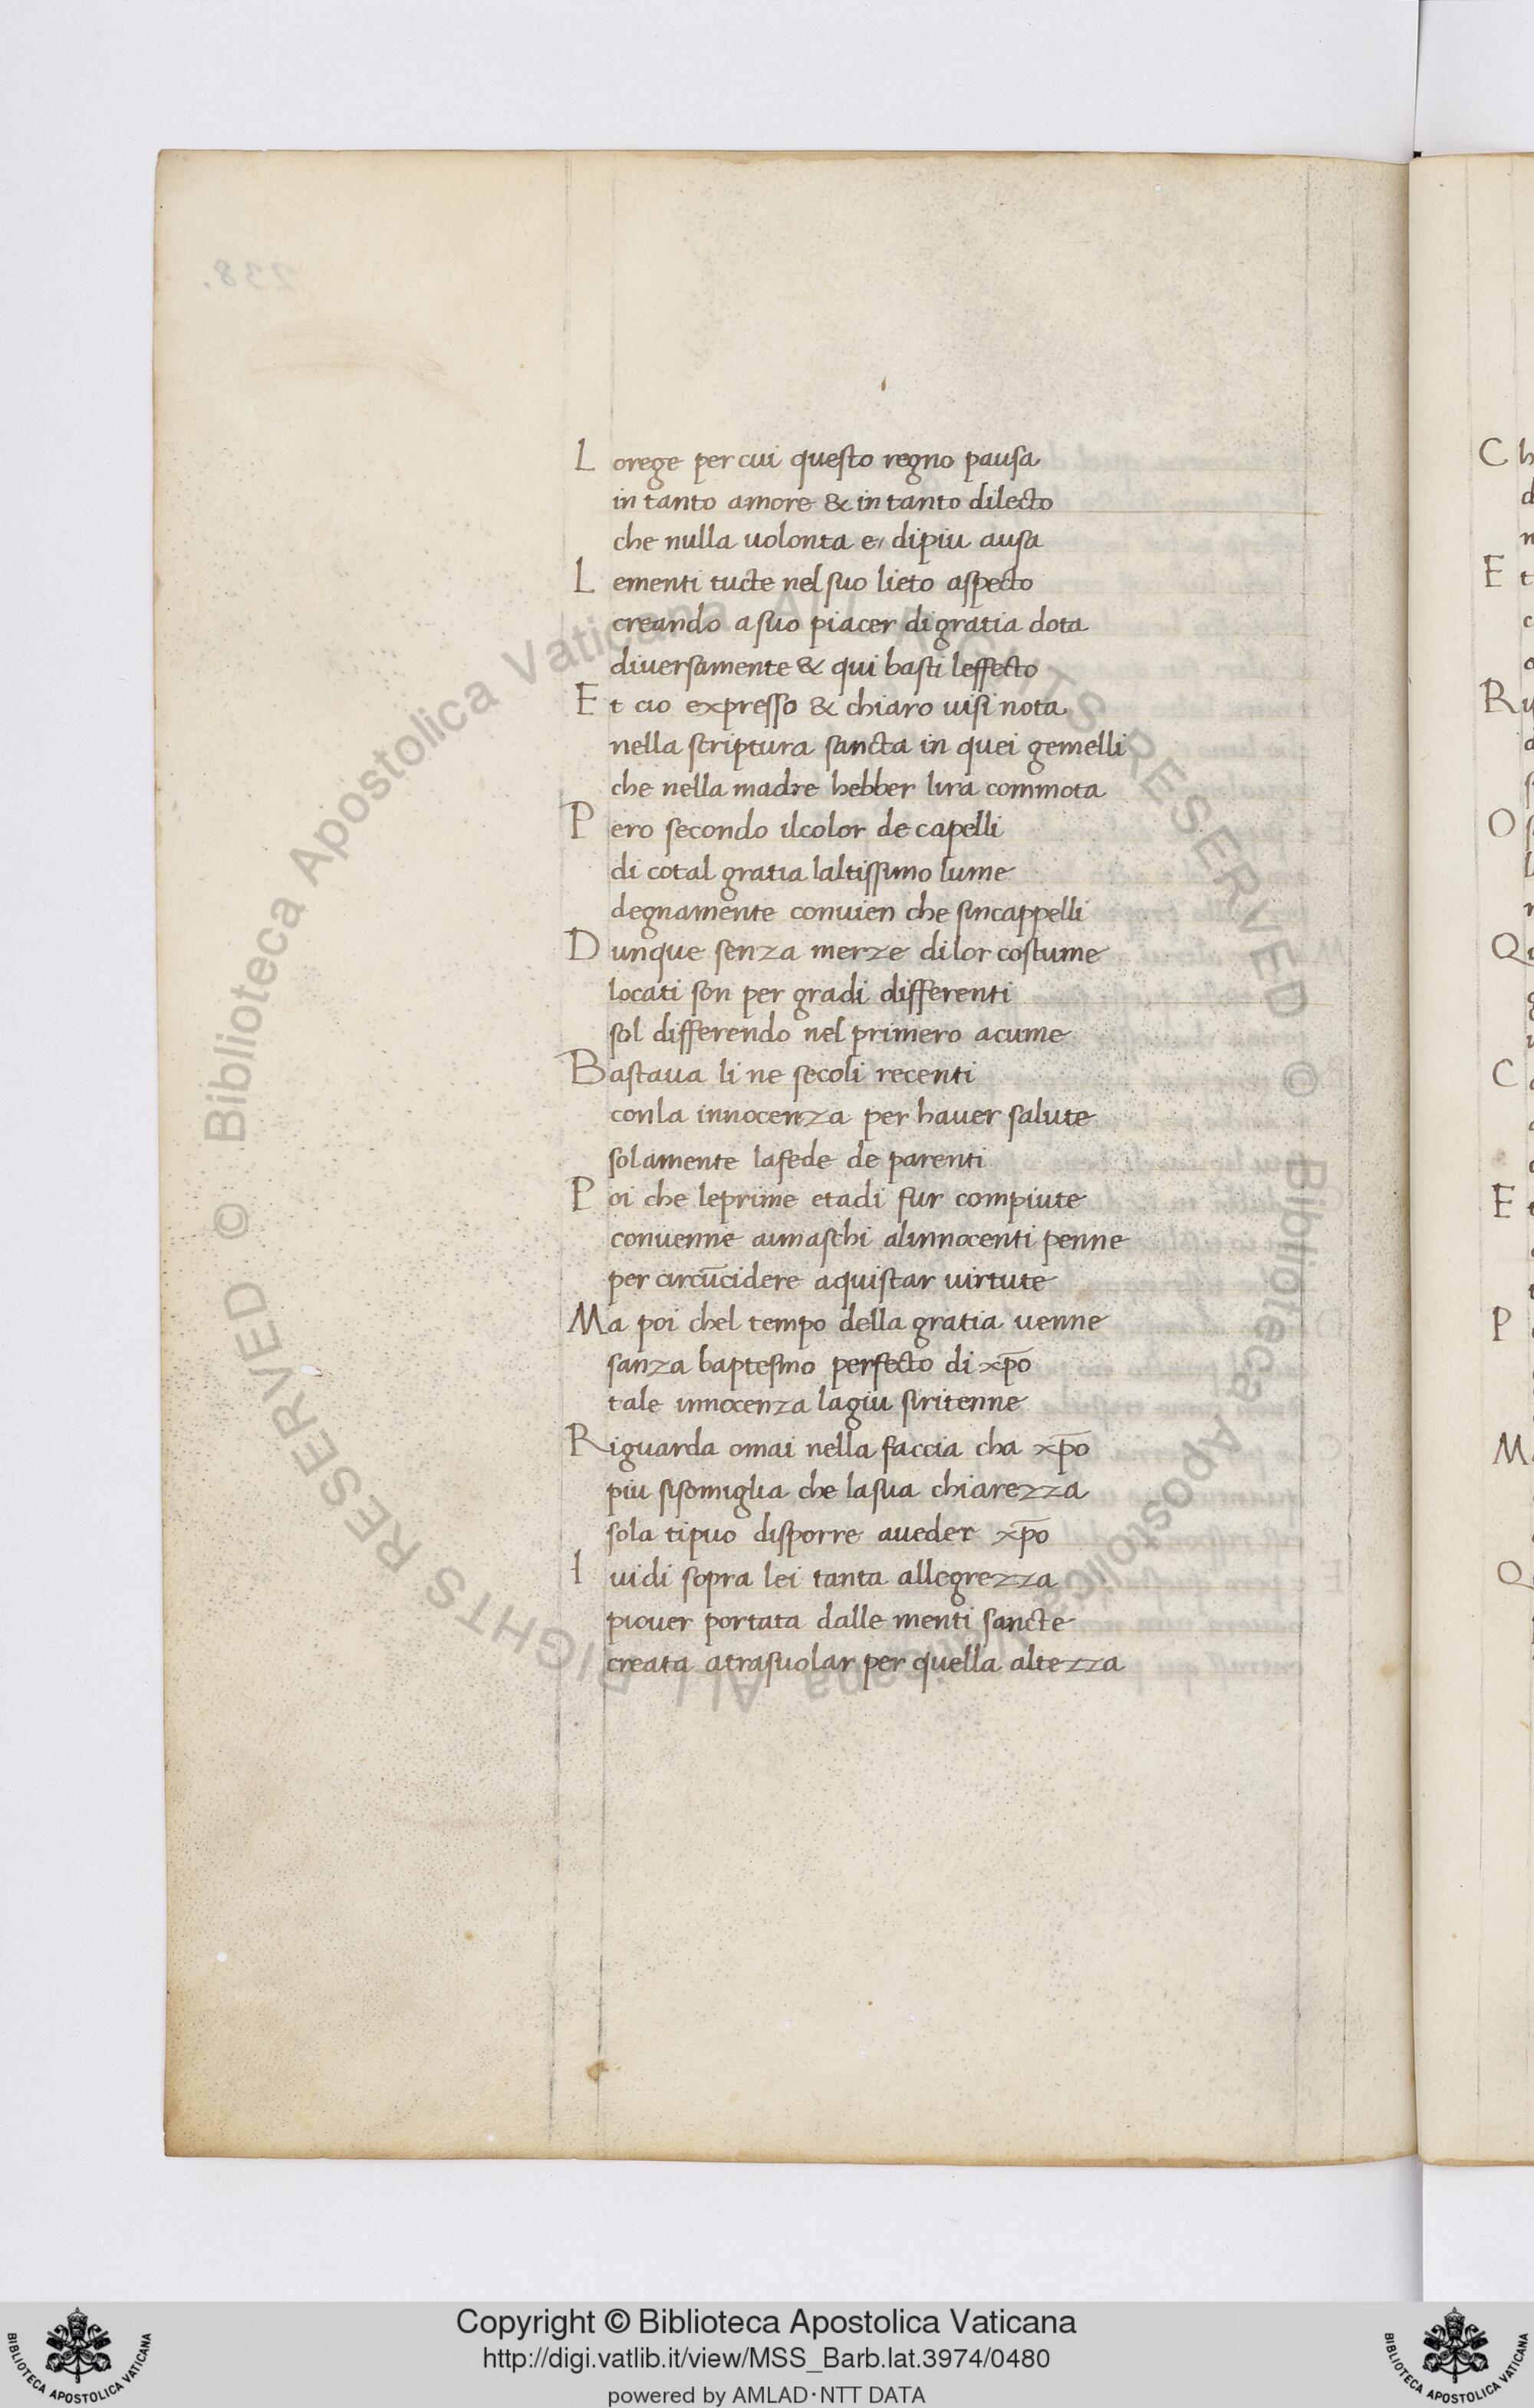 L orege per cui questo regno pausa
in tanto amore & in tanto dilecto
che nulla uolonta e/ dipiu ausa
L ementi tucte nel suo lieto aspecto
creando a suo piacer di gratia dota
diversamente & qui basti leffecto
E t cio expresso & chiaro uisi nota
nella scriptura sancta in quei gemelli
che nella madre hebber lira commota
P ero secondo ilcolor de capelli
di cotal gratia laltissimo lume
degnamente convien che sincappelli
D unque senza merze dilor costume
locati son per gradi differenti
sol differendo nel primero acume
Bastaua li ne secoli recenti
conla innocenza per hauer salute
solamente lafede de parenti
P oi che leprime etadi fur compiute
conuenne aimaschi alinnocenti penne
per circūcidere aquistar uirtute
Ma poi chel tempo della gratia uenne
sanza baptesmo perfecto di xp̄o
tale innocenza lagiu siritenne
Riguarda omai nella faccia cha xp̄o
piu sisomiglia che lasua chiarezza
sola tipuo disporre aueder xp̄o
I uidi sopra lei tanta allegrezza
piouer portata dalle menti sancte
creata atrasuolar per quella altezza
238.
C
E t
R
O
Q
C
E
P
M
Q
© Biblioteca Apostolica Vaticana ALL RIGHTS RESERVED © Biblioteca Apostolica Vaticana ALL RIGHTS RESERVED
Copyright © Biblioteca Apostolica Vaticana
http://digi.vatlib.it/view/MSS_Barb.lat.3974/0480
powered by AMLAD·NTT DATA
BIBLIOTECA APOSTOLICA VATICANA
BIBLIOTECA APOSTOLICA VATICANA